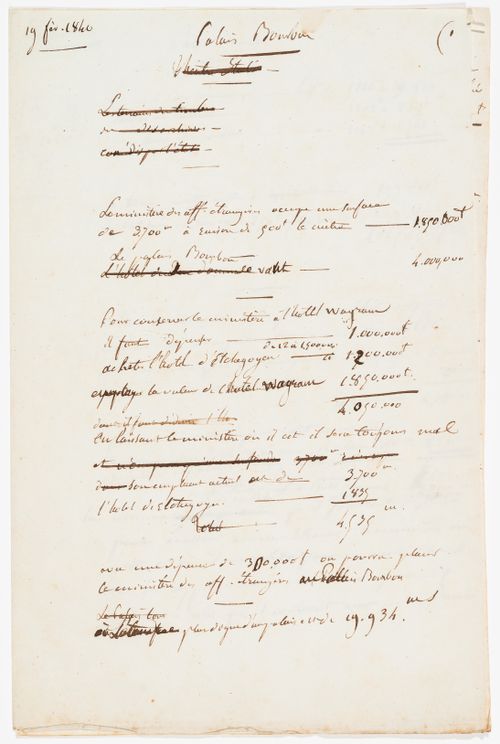 19 fév. 1840
Palais Bourbon
(1
Le ministère des aff. étrangères occupe une surface
de 3,700m à raison de 500f le mètre — 1.850.000f
Le Palais Bourbon
vaut — 4.000,000
Pour conserver le ministère à l'hôtel Wagram
il faut dépenser — 1.000.000f
acheter l'hôtel d'Etchegoyen de 12 à 1500,000 1.200.000f
la valeur de l'hôtel Wagram 1.850.000f
4.050.000
En laissant le ministère où il est il sera toujours mal
son emplacement actuel est de 3,700m
l'hôtel d'Etchegoyen — 1835
Total 4.535 m.
avec une dépense de 300.000f on pourra placer
le ministère des aff. étrangères au Palais Bourbon
Le Palais Bou
19.934. m s